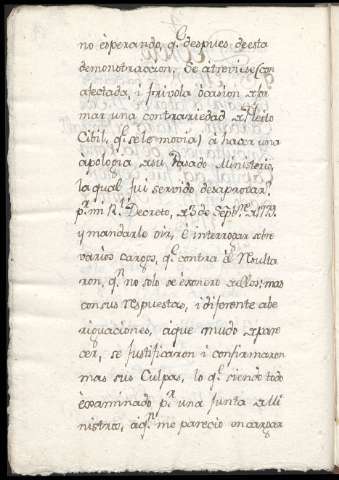 no esperando, q.e despues de esta
demonstraccion, se atreviese (con
afectada, i frivola ocasion de for
mar una contrariedad a Pleito
Cibil, q.e se le movia) à hacer una
apologia a su Pasado Ministerio,
la qual fui servido desaprovar,
p.r mi R.l Decreto, de 3 de Sept.re de
y mandarle oir, è interrogar sobre
varios cargos, q.e contra èl Resulta
ron, q.n no solo se èxonerò de ellos; mas
con sus respuestas, i diferente abe
riguaciones, àque mudo a pare
cer, se justificaron i confirmaron
mas sus Culpas, lo q.e siendo todo
èxaminado p.r una Junta de Mi
nistros, àq.n me parecio encargar